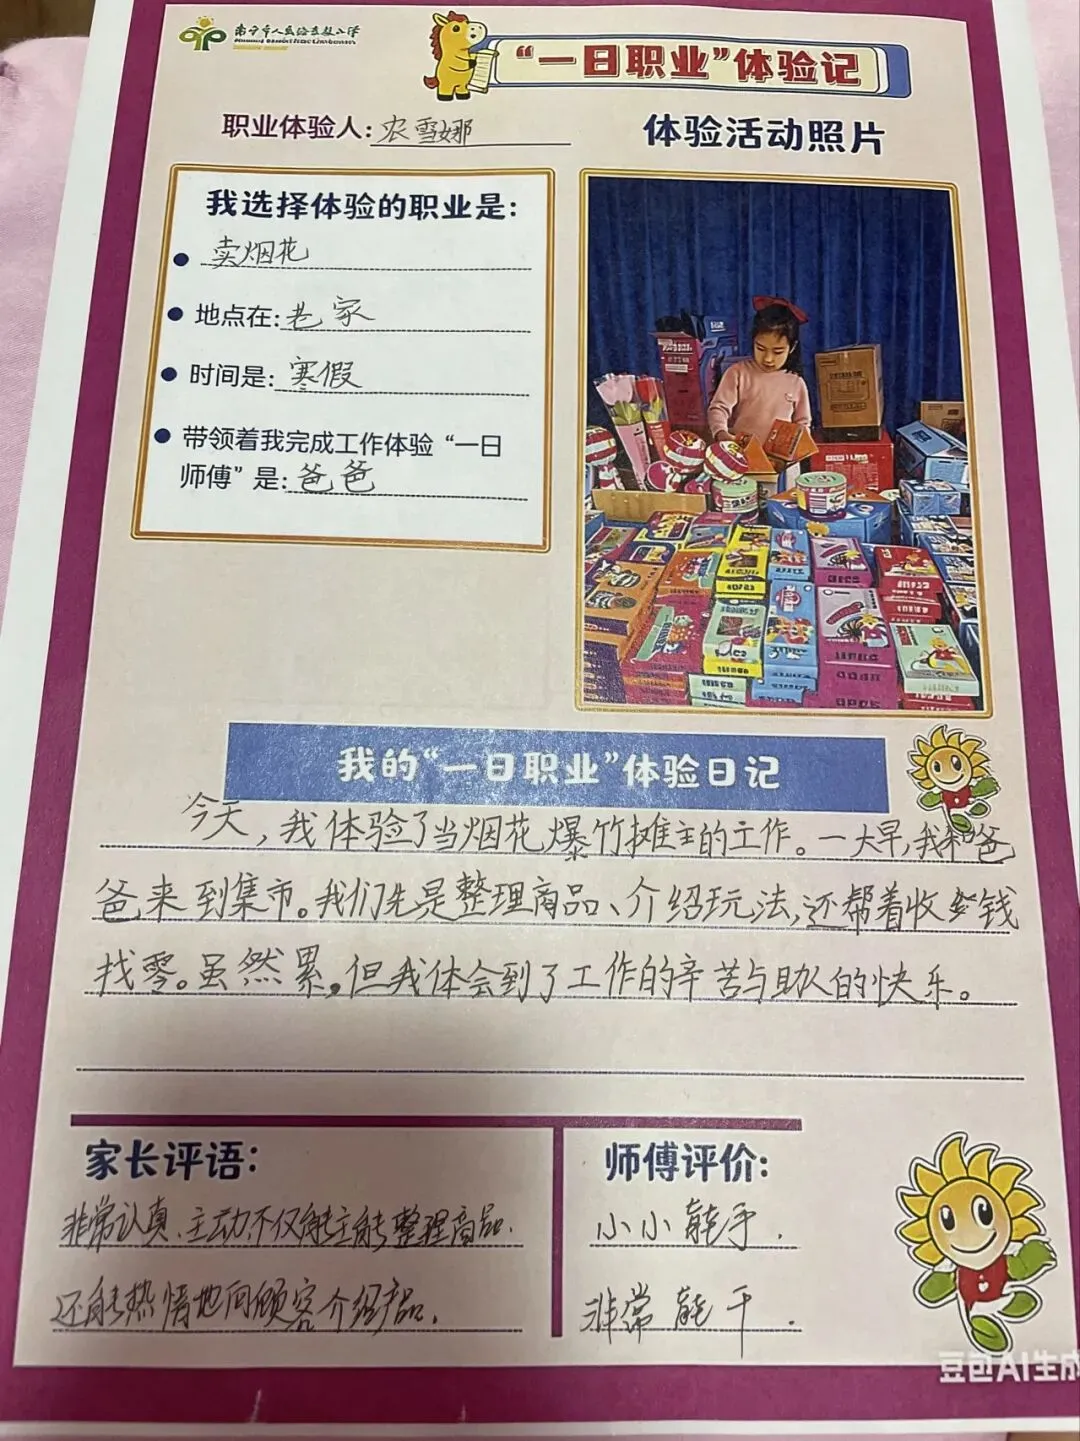 南宁市人民路东段小学
“一日职业”体验记
职业体验人:农雪娜
体验活动照片
我选择体验的职业是:
卖烟花
地点在:老家
时间是:寒假
带领着我完成工作体验“一日
师傅”是:爸爸
我的“一日职业”体验日记
今天,我体验了当烟花爆竹摊主的工作。一大早,我和爸
爸来到集市。我们先是整理商品、介绍玩法,还帮着收钱
找零。虽然累,但我体会到了工作的辛苦与助人的快乐。
家长评语:
非常认真、主动,不仅能主能整理商品.
还能热情地向顾客介绍产品.
师傅评价:
小小能手.
非常能干.
豆包AI生成